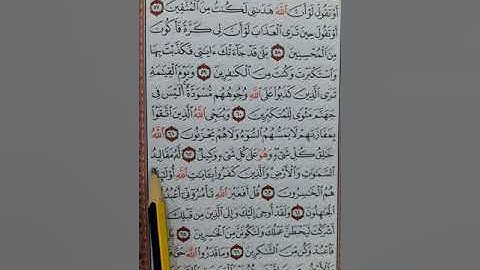 أَوْ تَقُولَ لَوْ أَنَّ ٱللَّهَ هَدَىٰنِى لَكُنتُ مِنَ ٱلْمُتَّقِينَ ٥٧
أَوْ تَقُولَ حِينَ تَرَى ٱلْعَذَابَ لَوْ أَنَّ لِى كَرَّةً فَأَكُونَ
مِنَ ٱلْمُحْسِنِينَ ٥٨ بَلَىٰ قَدْ جَآءَتْكَ ءَايَٰتِى فَكَذَّبْتَ بِهَا
وَٱسْتَكْبَرْتَ وَكُنتَ مِنَ ٱلْكَٰفِرِينَ ٥٩ وَيَوْمَ ٱلْقِيَٰمَةِ
تَرَى ٱلَّذِينَ كَذَبُوا۟ عَلَى ٱللَّهِ وُجُوهُهُم مُّسْوَدَّةٌ أَلَيْسَ فِى
جَهَنَّمَ مَثْوًى لِّلْمُتَكَبِّرِينَ ٦٠ وَيُنَجِّى ٱللَّهُ ٱلَّذِينَ ٱتَّقَوْا۟
بِمَفَازَتِهِمْ لَا يَمَسُّهُمُ ٱلسُّوٓءُ وَلَا هُمْ يَحْزَنُونَ ٦١ ٱللَّهُ
خَٰلِقُ كُلِّ شَىْءٍ وَهُوَ عَلَىٰ كُلِّ شَىْءٍ وَكِيلٌ ٦٢ لَّهُۥ مَقَالِيدُ
ٱلسَّمَٰوَٰتِ وَٱلْأَرْضِ وَٱلَّذِينَ كَفَرُوا۟ بِـَٔايَٰتِ ٱللَّهِ
هُمُ ٱلْخَٰسِرُونَ ٦٣ قُلْ أَفَغَيْرَ ٱللَّهِ تَأْمُرُوٓنِّىٓ أَعْبُدُ
ٱلْجَٰهِلُونَ ٦٤ وَلَقَدْ أُوحِىَ إِلَيْكَ وَإِلَى ٱلَّذِينَ مِن قَبْلِكَ
أَشْرَكْتَ لَيَحْبَطَنَّ عَمَلُكَ وَلَتَكُونَنَّ مِنَ ٱلْخَٰسِرِينَ ٦٥
فَٱعْبُدْ وَكُن مِّنَ ٱلشَّٰكِرِينَ ٦٦ وَمَا قَدَرُوا۟ ٱللَّهَ حَقَّ